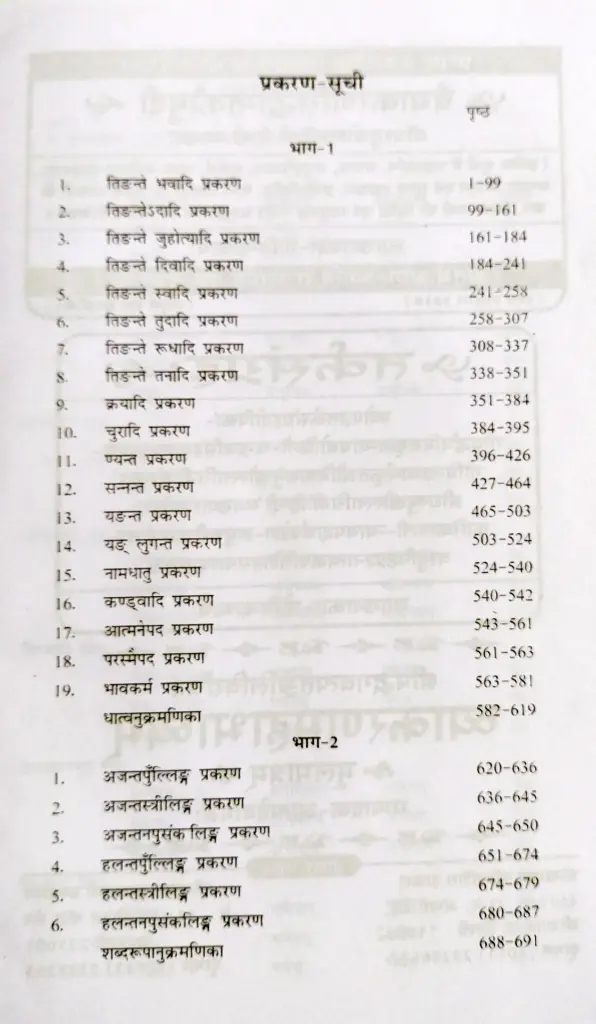 प्रकरण-सूची
पृष्ठ
भाग-1
1. तिङन्ते भवादि प्रकरण 1-99
2. तिङन्तेऽदादि प्रकरण 99-161
3. तिङन्ते जुहोत्यादि प्रकरण 161-184
4. तिङन्ते दिवादि प्रकरण 184-241
5. तिङन्ते स्वादि प्रकरण 241-258
6. तिङन्ते तुदादि प्रकरण 258-307
7. तिङन्ते रूधादि प्रकरण 308-337
8. तिङन्ते तनादि प्रकरण 338-351
9. क्रयादि प्रकरण 351-384
10. चुरादि प्रकरण 384-395
11. ण्यन्त प्रकरण 396-426
12. सन्नन्त प्रकरण 427-464
13. यङन्त प्रकरण 465-503
14. यङ् लुगन्त प्रकरण 503-524
15. नामधातु प्रकरण 524-540
16. कण्ड्वादि प्रकरण 540-542
17. आत्मनेपद प्रकरण 543-561
18. परस्मैपद प्रकरण 561-563
19. भावकर्म प्रकरण 563-581
धात्वनुक्रमणिका 582-619
भाग-2
1. अजन्तपुँल्लिङ्ग प्रकरण 620-636
2. अजन्तस्त्रीलिङ्ग प्रकरण 636-645
3. अजन्तनपुसंक लिङ्ग प्रकरण 645-650
4. हलन्तपुँल्लिङ्ग प्रकरण 651-674
5. हलन्तस्त्रीलिङ्ग प्रकरण 674-679
6. हलन्तनपुसंकलिङ्ग प्रकरण 680-687
शब्दरूपानुक्रमणिका 688-691